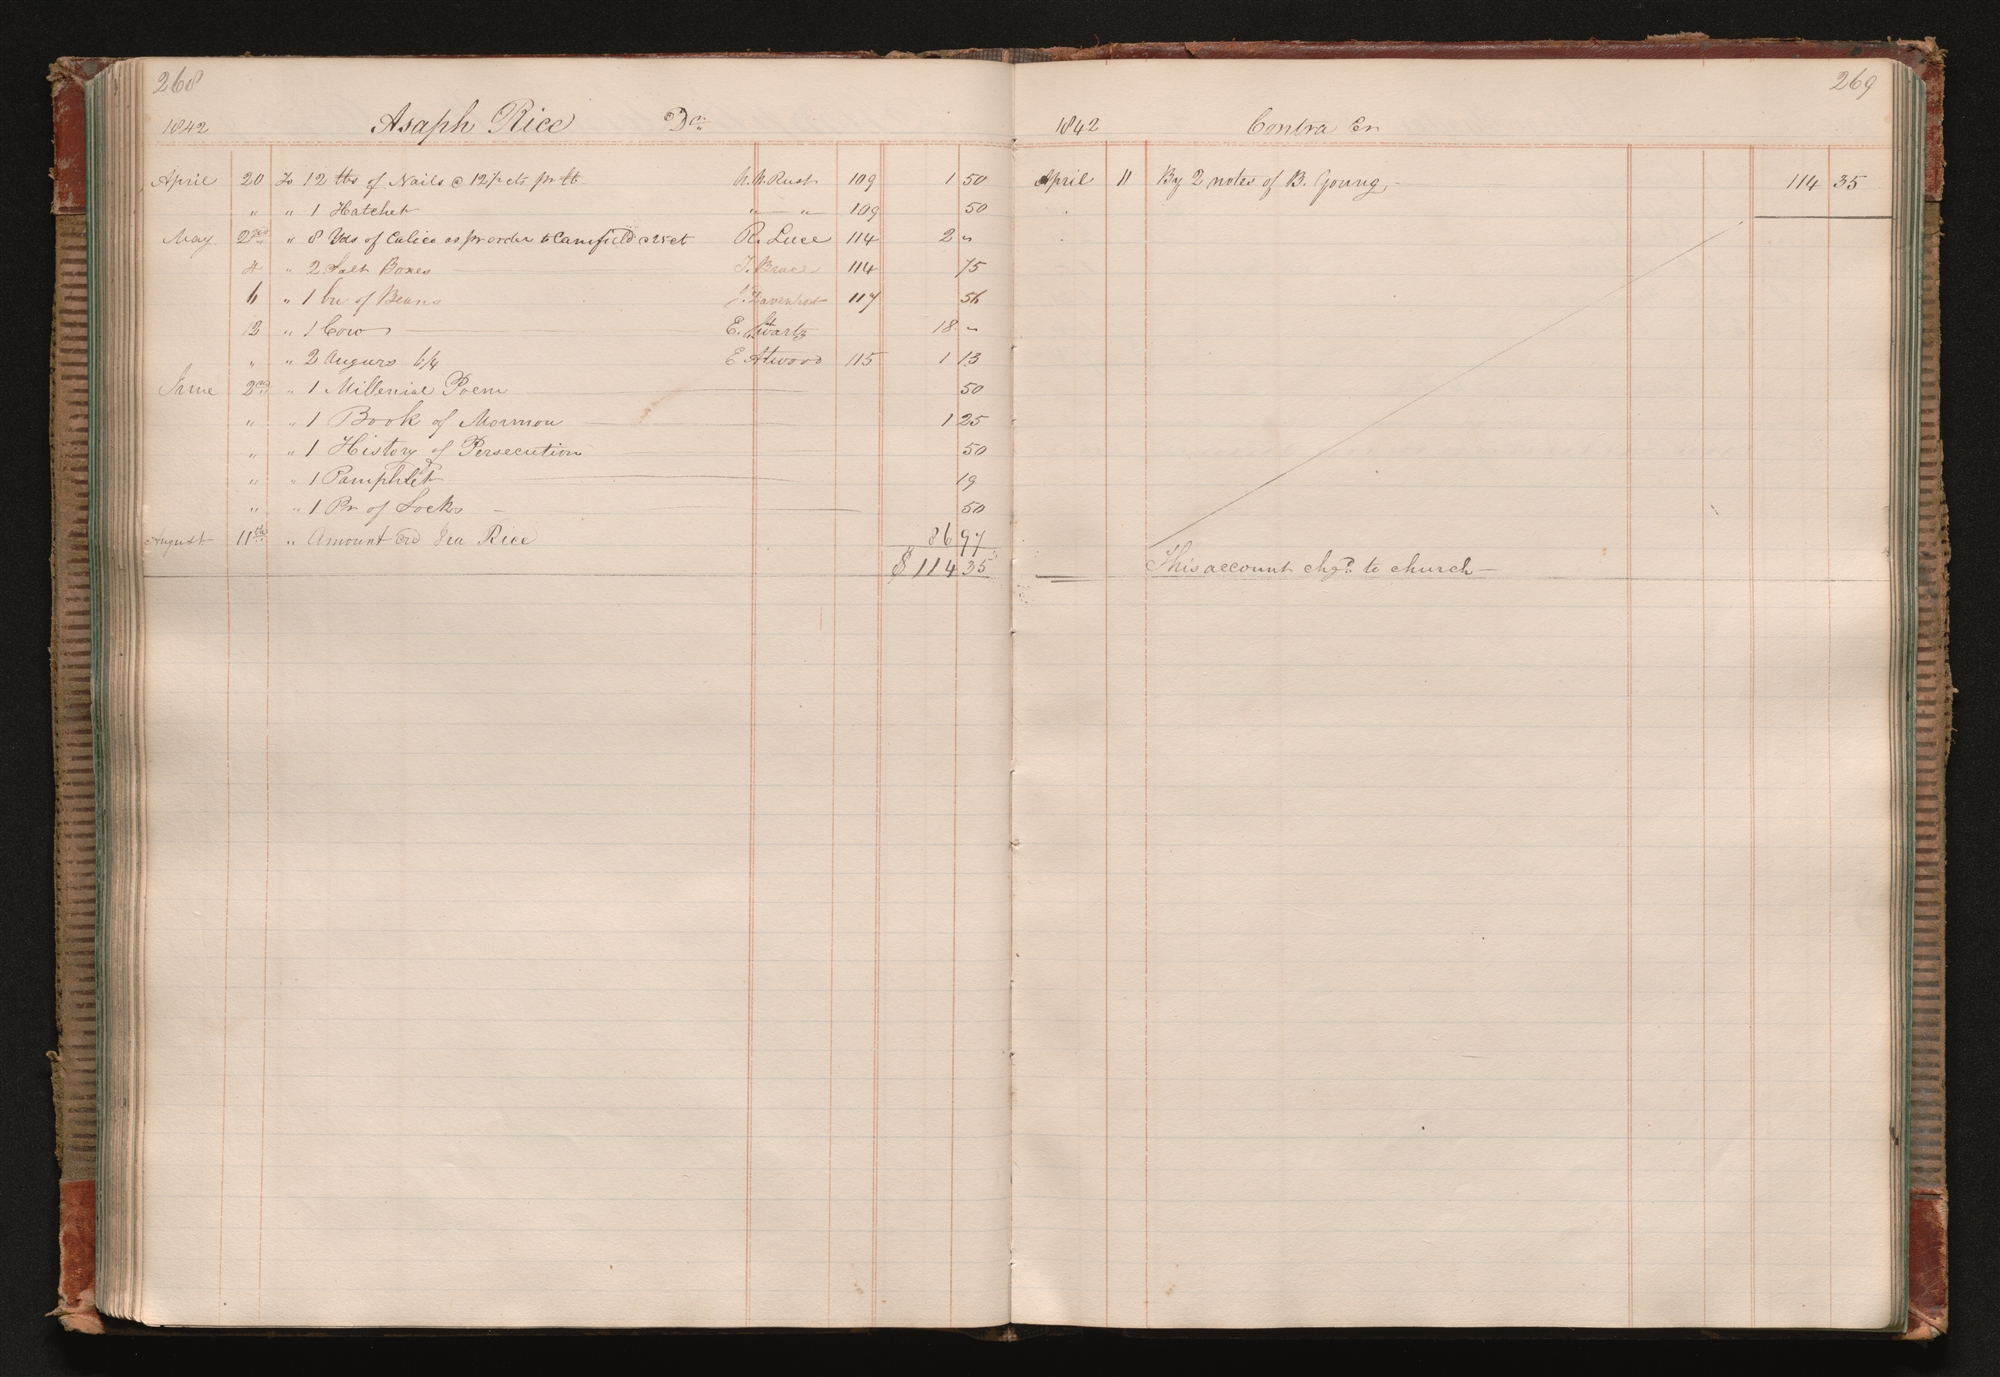 268
1842 Asaph Rice Dr.
April 20 To 12 lbs of Nails @ 12½ cts pr lb W. W. Rust 109 1 50
" " 1 Hatchet " " 109 50
May 2nd " 8 Yds of Calico as pr order to Canfield @ 25 ct R. Luce 114 2 "
4 " 2 Salt Boxes J. Bruce 114 75
6 " 1 bu of Beans J. Davenport 117 56
12 " 1 Cow E. Swartz 18 "
" " 2 Augurs 6/4 E Atwood 115 1 13
June 2nd " 1 Millenial Poem 50
" " 1 Book of Mormon 1 25
" " 1 History of Persecution 50
" " 1 Pamphlet 19
" " 1 Pr of Socks 50
August 11th " Amount Crd Ira Rice 86 97
$ 114 35
269
1842 Contra Cr
April 11 By 2 notes of B. Young 114 35
This account chgd. to church